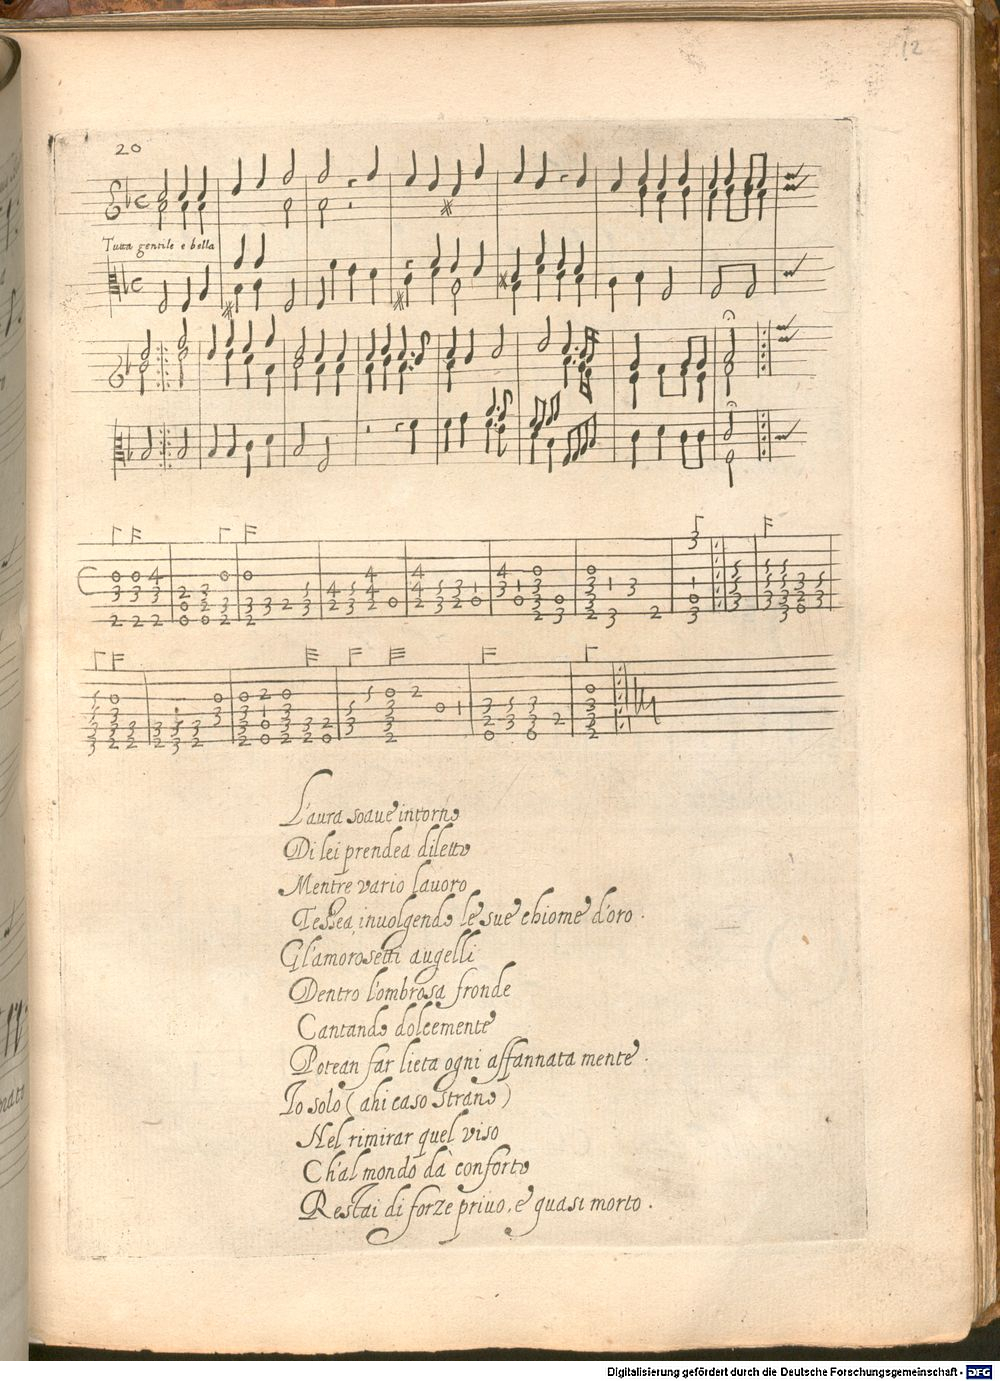 12
20
Tutta gentile e bella
L'aura soaue intorno
Di lei prendea diletto
Mentre vario lauoro
Tessea inuolgendo le sue chiome d'oro.
Gl'amorosetti augelli
Dentro l'ombrosa fronde
Cantando dolcemente
Potean far lieta ogni affannata mente.
Io solo (ahi caso strano)
Nel rimirar quel viso
Ch'al mondo dà conforto
Restai di forze priuo, e quasi morto.
Digitalisierung gefördert durch die Deutsche Forschungsgemeinschaft - DFG